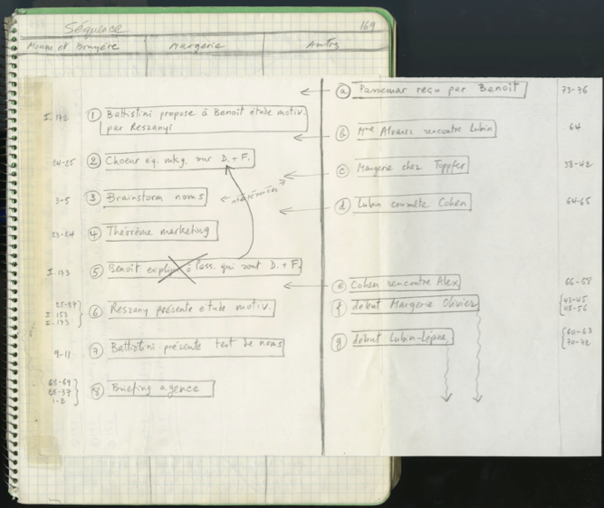 Séquence
169
Mouns et Bruyère
Margerie
Autres
I. 172
① Battistini propose à Benoît étude motiv.
par Reszanyi
24-25
② Choeur éq. mkg. sur D. + F.
3-5
③ Brainstorm noms
23-24
④ Théorème marketing
I. 173
⑤ Benoît explique à Pass. qui sont D. + F.
I. 153
I. 173
⑥ Reszany présente étude motiv.
9-11
⑦ Battistini présente test de noms
68-69
1-2
⑧ Briefing agence
ⓐ Passemar reçu par Benoît
73-76
ⓑ Mme Alvarez rencontre Lubin
64
ⓒ Margerie chez Toppfer
38-42
ⓓ Lubin connaît Cohen
64-65
ⓔ Cohen rencontre Alex
66-68
ⓕ début Margerie Olivier
ⓖ début Lubin-Lépine
60-63
70-72